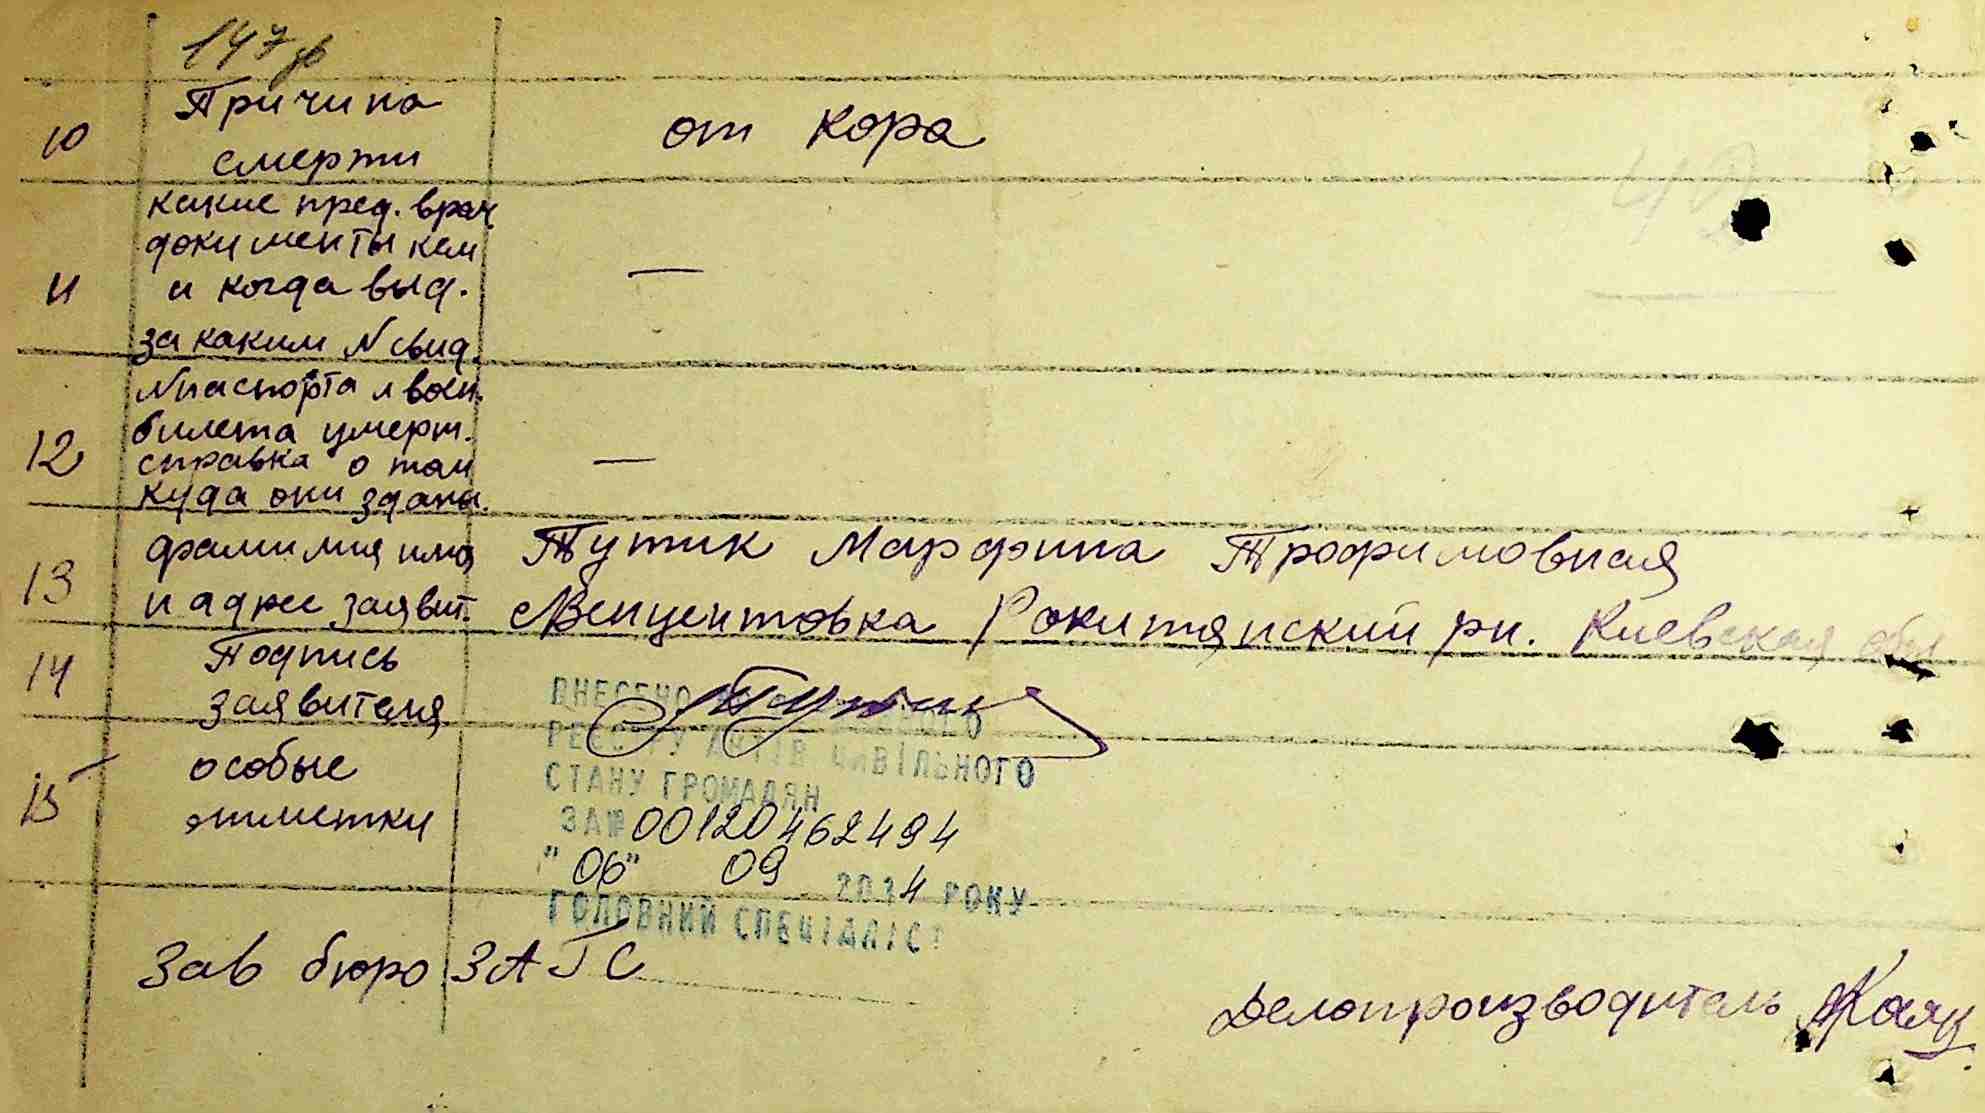 147
10 Причина
смерти
от кора
11 какие пред. врач
документы кем
и когда выд.
за каким N свид.
—
12 N паспорта и воен.
билета умерт.
справка о том
куда они здана.
—
13 фамилия имя
и адрес заявит.
Тутик Марфина Трофимовная
с Венцентовка Рокитянский рн. Киевская обл
14 Подпись
заявителя
Тутик
15 особые
отметки
ВНЕСЕНО
РЕЄСТРУ АКТІВ ЦИВІЛЬНОГО
СТАНУ ГРОМАДЯН
ЗА № 00120462494
"06" 09 2024 РОКУ
ГОЛОВНИЙ СПЕЦІАЛІСТ
Зав бюро ЗАГС
Делопроизводитель